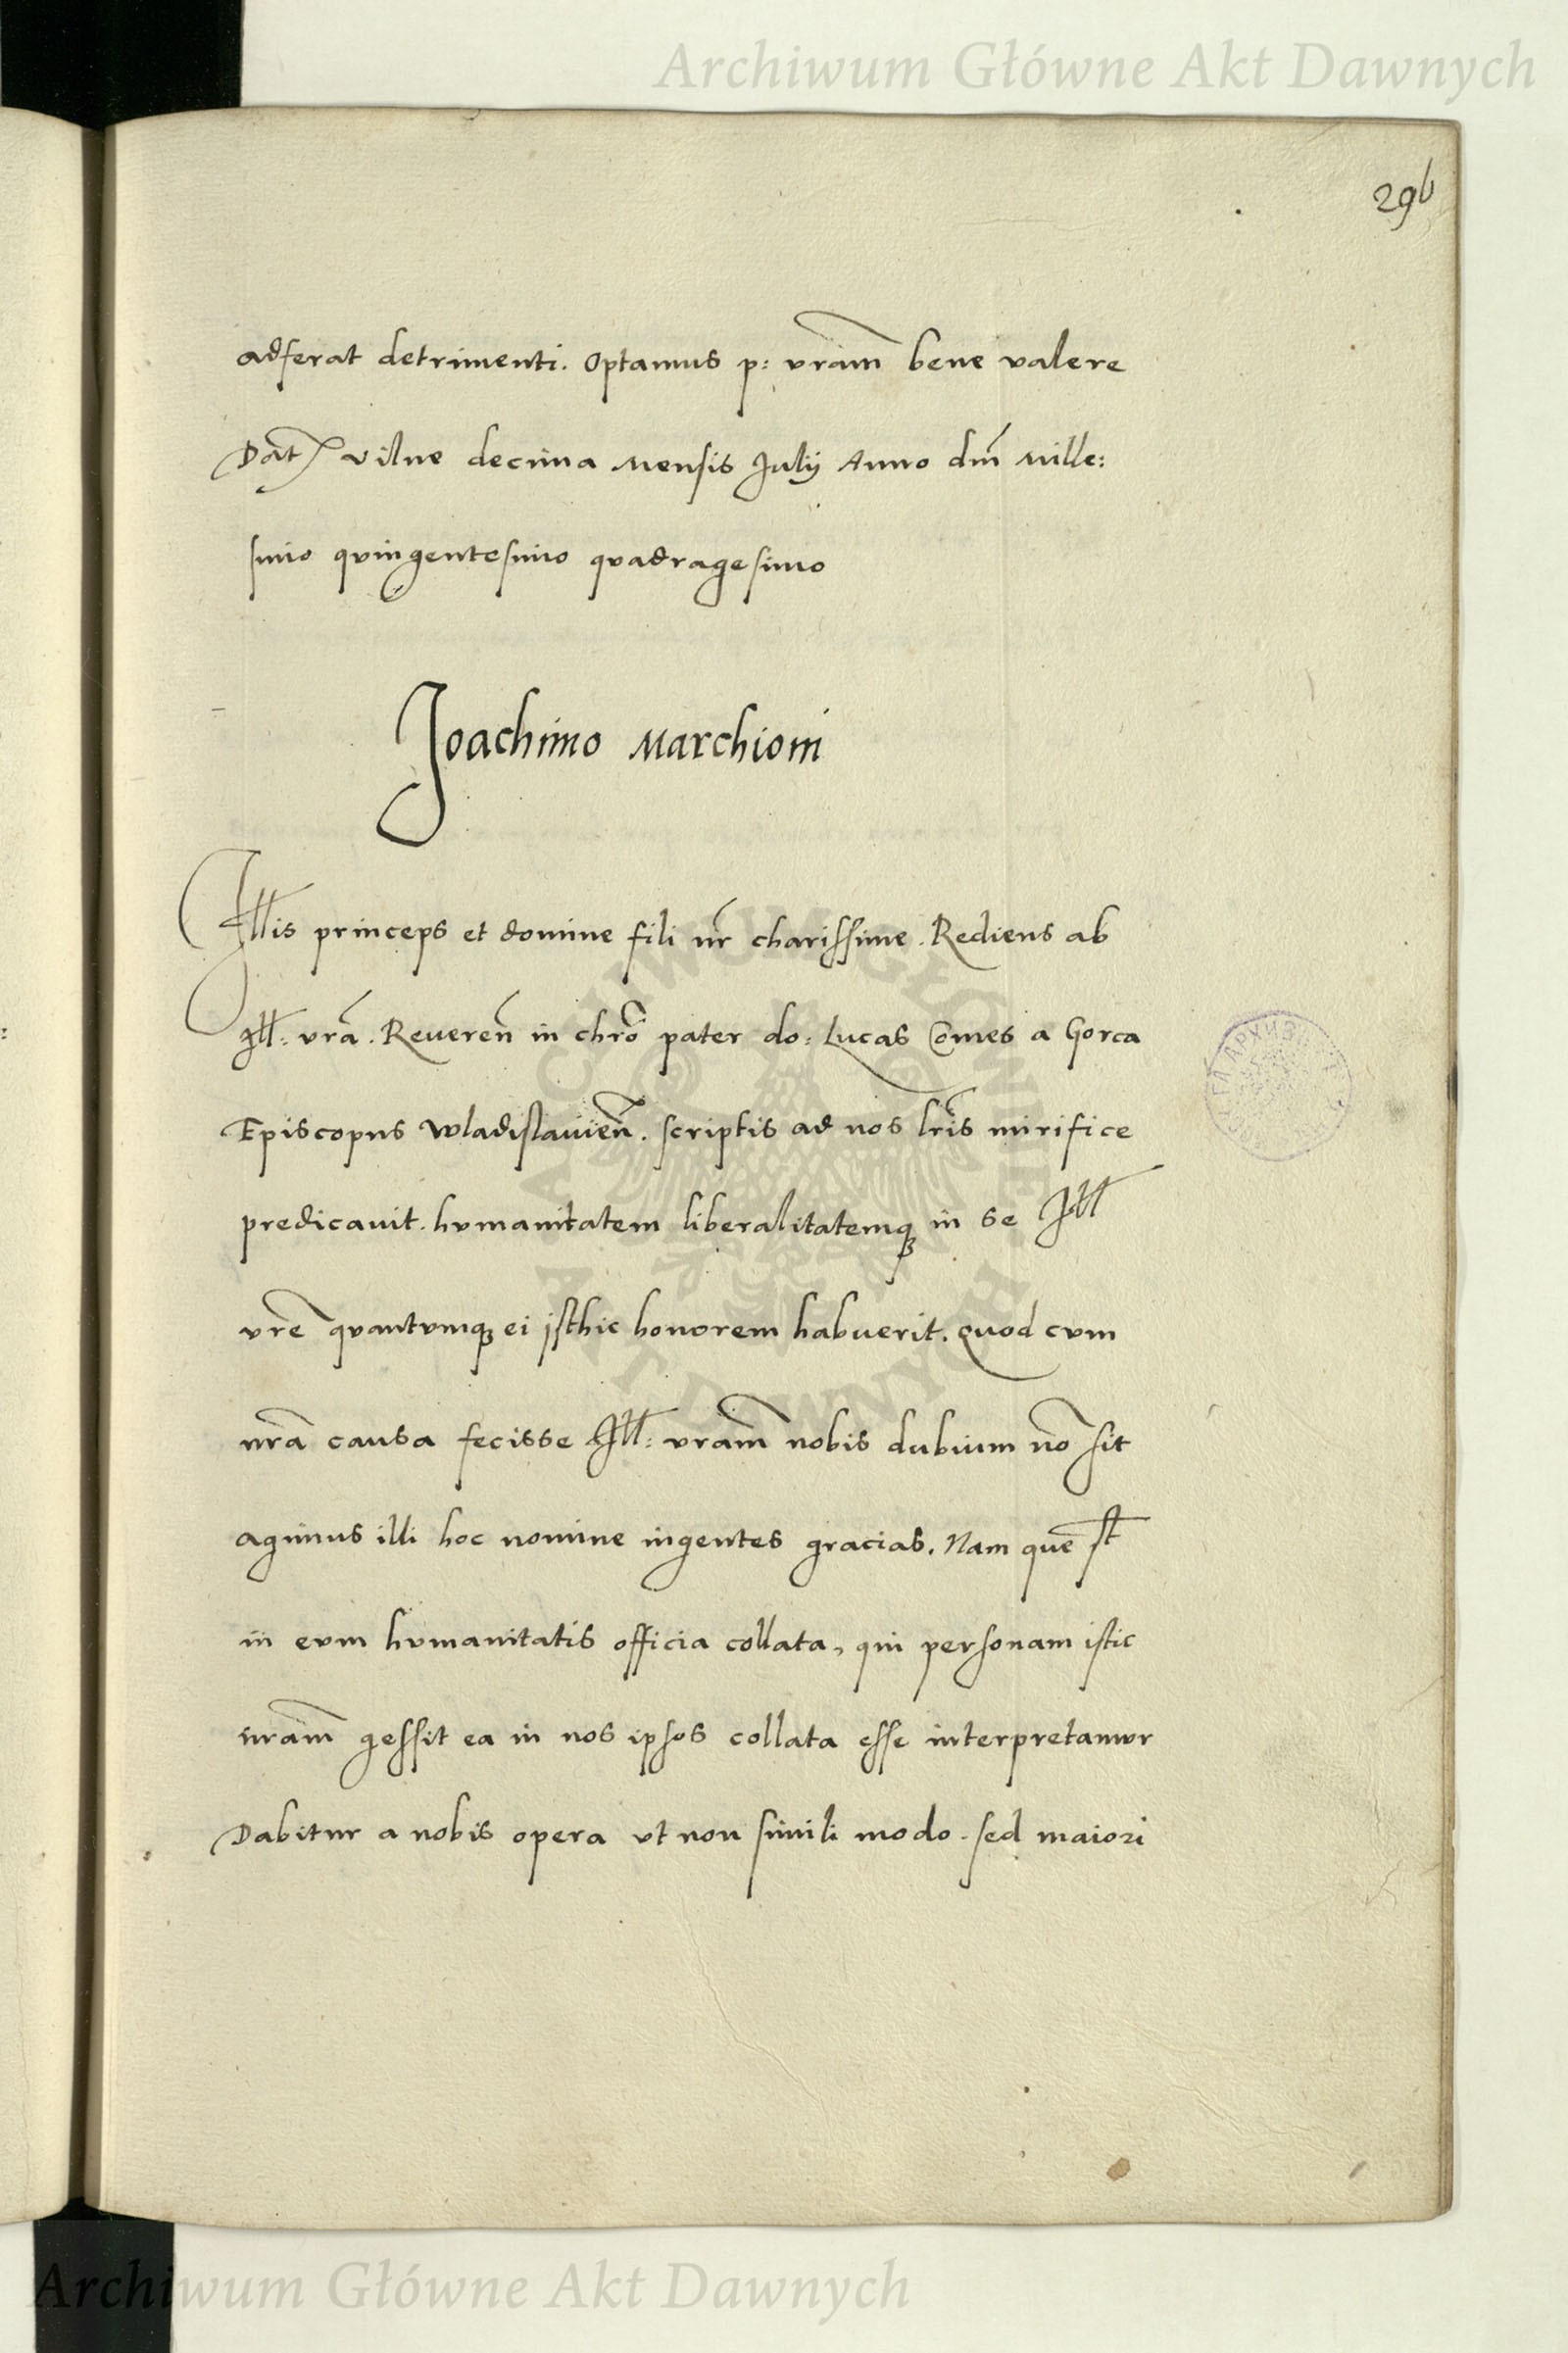 Archiwum Główne Akt Dawnych
296
adferat detrimenti. Optamus p: vram̃ bene valere
Dat̃ vilne decima mensis Julij Anno dnĩ Mille:
simo qvingentesimo qvadragesimo
Joachimo Marchioni
Illis princeps et domine fili nr̃ charissime. Rediens ab
Ill: vrã. Reueren̄ in chrõ pater do: Lucas Comes a Gorca
Episcopus wladislauien̄. scriptis ad nos lrĩs mirifice
predicauit. hvmanitatem liberalitatemqꝫ in se Ill
vrẽ qvantvmqꝫ ei isthic honorem habuerit. Quod cvm
nrã causa fecisse Ill: vram̃ nobis dubium nõ sit
agimus illi hoc nomine ingentes gracias. Nam que st̃
in evm hvmanitatis officia collata, qui personam istic
nram̃ gessit ea in nos ipsos collata esse interpretamvr
Dabitur a nobis opera vt non simili modo. sed maiori
Archiwum Główne Akt Dawnych